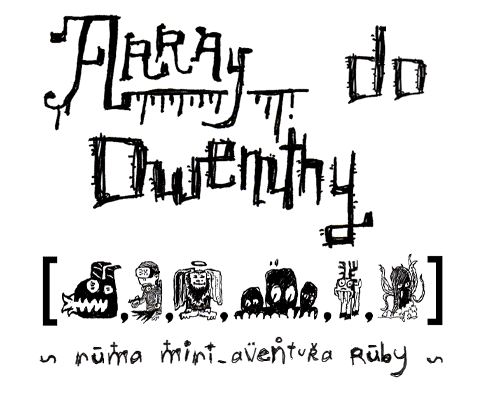 Array do
Dwemthy
[ , , , , , ]
~ numa mini-aventura Ruby ~